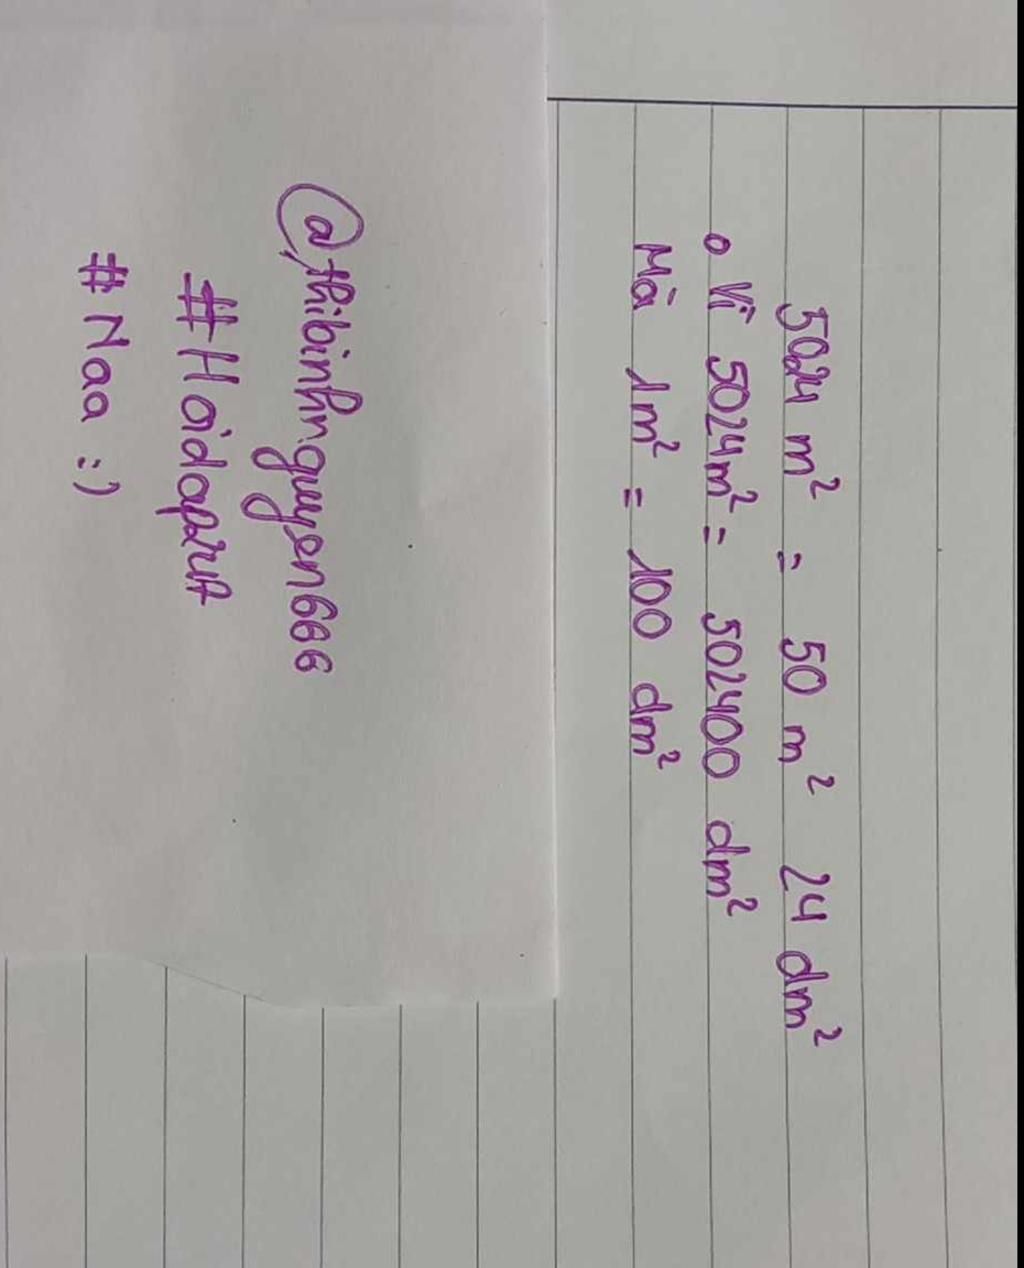 5024 m² = 50 m² 24 dm²
• Vì 5024m² = 502400 dm²
Mà 1m² = 100 dm²
@thibinhnguyen666
#Hoidap247
#Naa :)